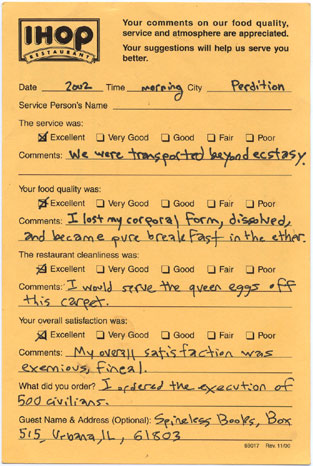 IHOP
RESTAURANT
Your comments on our food quality,
service and atmosphere are appreciated.
Your suggestions will help us serve you
better.
Date 2002 Time morning City Perdition
Service Person's Name
The service was:
Excellent Very Good Good Fair Poor
Comments: We were transported beyond ecstasy.
Your food quality was:
Excellent Very Good Good Fair Poor
Comments: I lost my corporal form, dissolved,
and became pure breakfast in the ether.
The restaurant cleanliness was:
Excellent Very Good Good Fair Poor
Comments: I would serve the queen eggs off
this carpet.
Your overall satisfaction was:
Excellent Very Good Good Fair Poor
Comments: My overall satisfaction was
exemious, fineal.
What did you order? I ordered the execution of
500 civilians.
Guest Name & Address (Optional): Spineless Books, Box
515, Urbana, IL, 61803
69017 Rev. 11/00